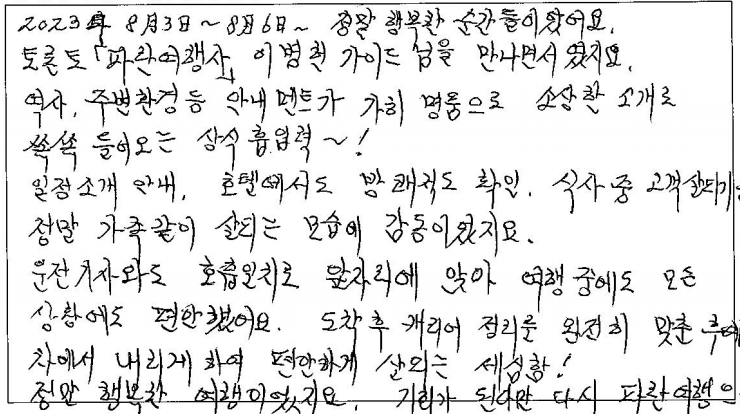 2023年 8月3日~8月6日~ 정말 행복한 순간들이었어요.
토론토「파란여행사」 이병헌 가이드님을 만나면서였지요.
역사, 주변환경등 안내멘트가 가히 명품으로 소상한 소개로
쏙쏙 들어오는 상식흡입력~!
일정소개 안내, 호텔에서도 방쾌적도 확인, 식사중 고객살피기
정말 가족같이 살피는 모습에 감동이었지요.
운전기사와도 호흡일치로 앞자리에 앉아 여행중에도 모든
상황에도 편안했어요. 도착후 캐리어 정리를 완전히 맞춘 후에
차에서 내리게하여 편안하게 살피는 세심함!
정말 행복한 여행이었지요. 기회가 된다면 다시 파란여행으